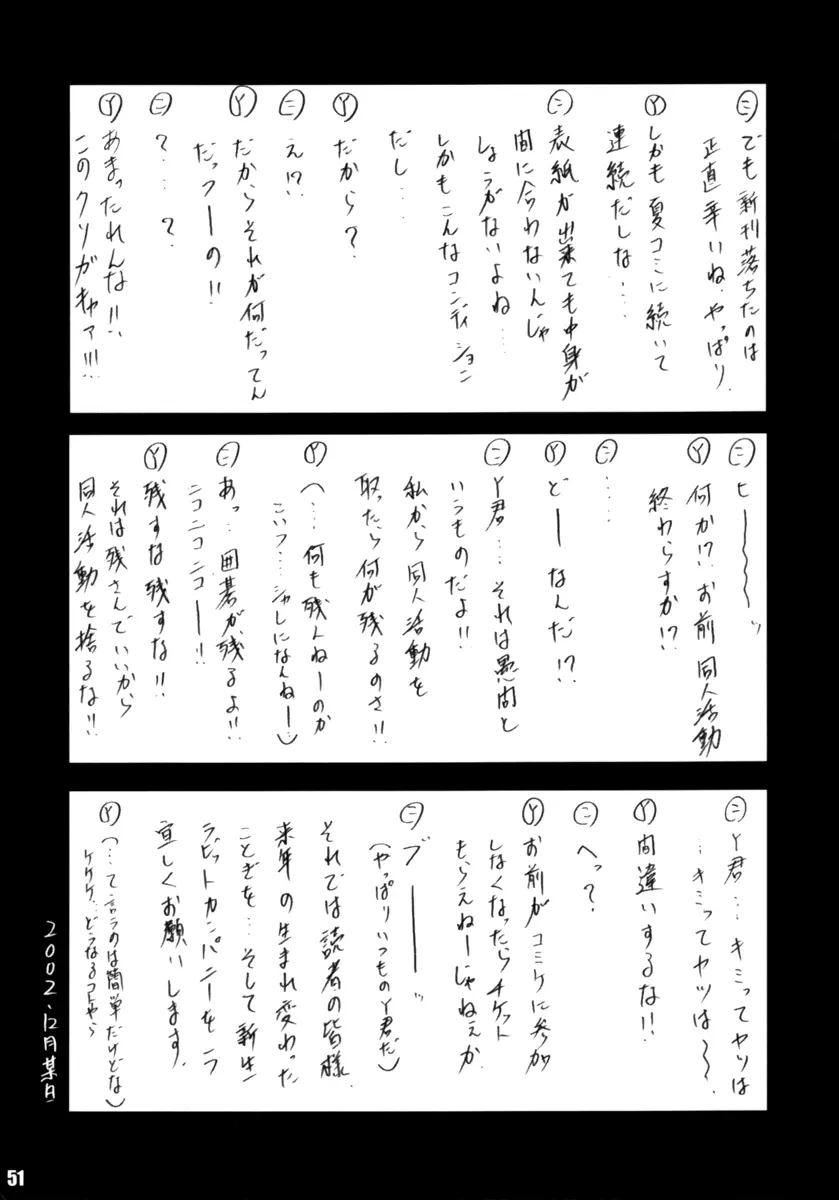 ㊁でも新刊落ちたのは
正直辛いね、やっぱり.
Ⓨしかも夏コミに続いて
連続だしな….
㊁表紙が出来ても中身が
間に合わないんじゃ
しょうがないよね….
しかもこんなコンディション
だし….
Ⓨだから?
㊁え!?
Ⓨだからそれが何だってん
だっつーの!!
㊁?…. ?
Ⓨあまったれんな!!
このクソガキャァ!!!
㊁ヒー〜〜〜ッ
Ⓨ何か!?お前同人活動
終わらすか!?
㊁….
Ⓨどーなんだ!?
㊁Y君…それは愚問と
いうものだよ!!
私から同人活動を
取ったら何が残るのさ!!
Ⓨ(…何も残んねーのか
こいつ…シャレになんねー…)
㊁あっ…囲碁が残るよ!!
ニコニコニコー!!
Ⓨ残すな残すな!!
それは残さんでいいから
同人活動を捨るな!!
㊁Y君…キミってヤツは
…キミってヤツは〜〜.
Ⓨ間違いするな!!
㊁へっ?
Ⓨお前がコミケに参加
しなくなったらチケット
もらえねーじゃねぇか.
㊁ブーーッ
(やっぱりいつものY君だ)
それでは読者の皆様
来年の生まれ変わった
ことぎを…そして新生
ラビットカンパニーをヲ
宜しくお願いします.
Ⓨ(…て言うのは簡単だけどな
ケケケ…どうなるコトやら)
2002.12月某日
51